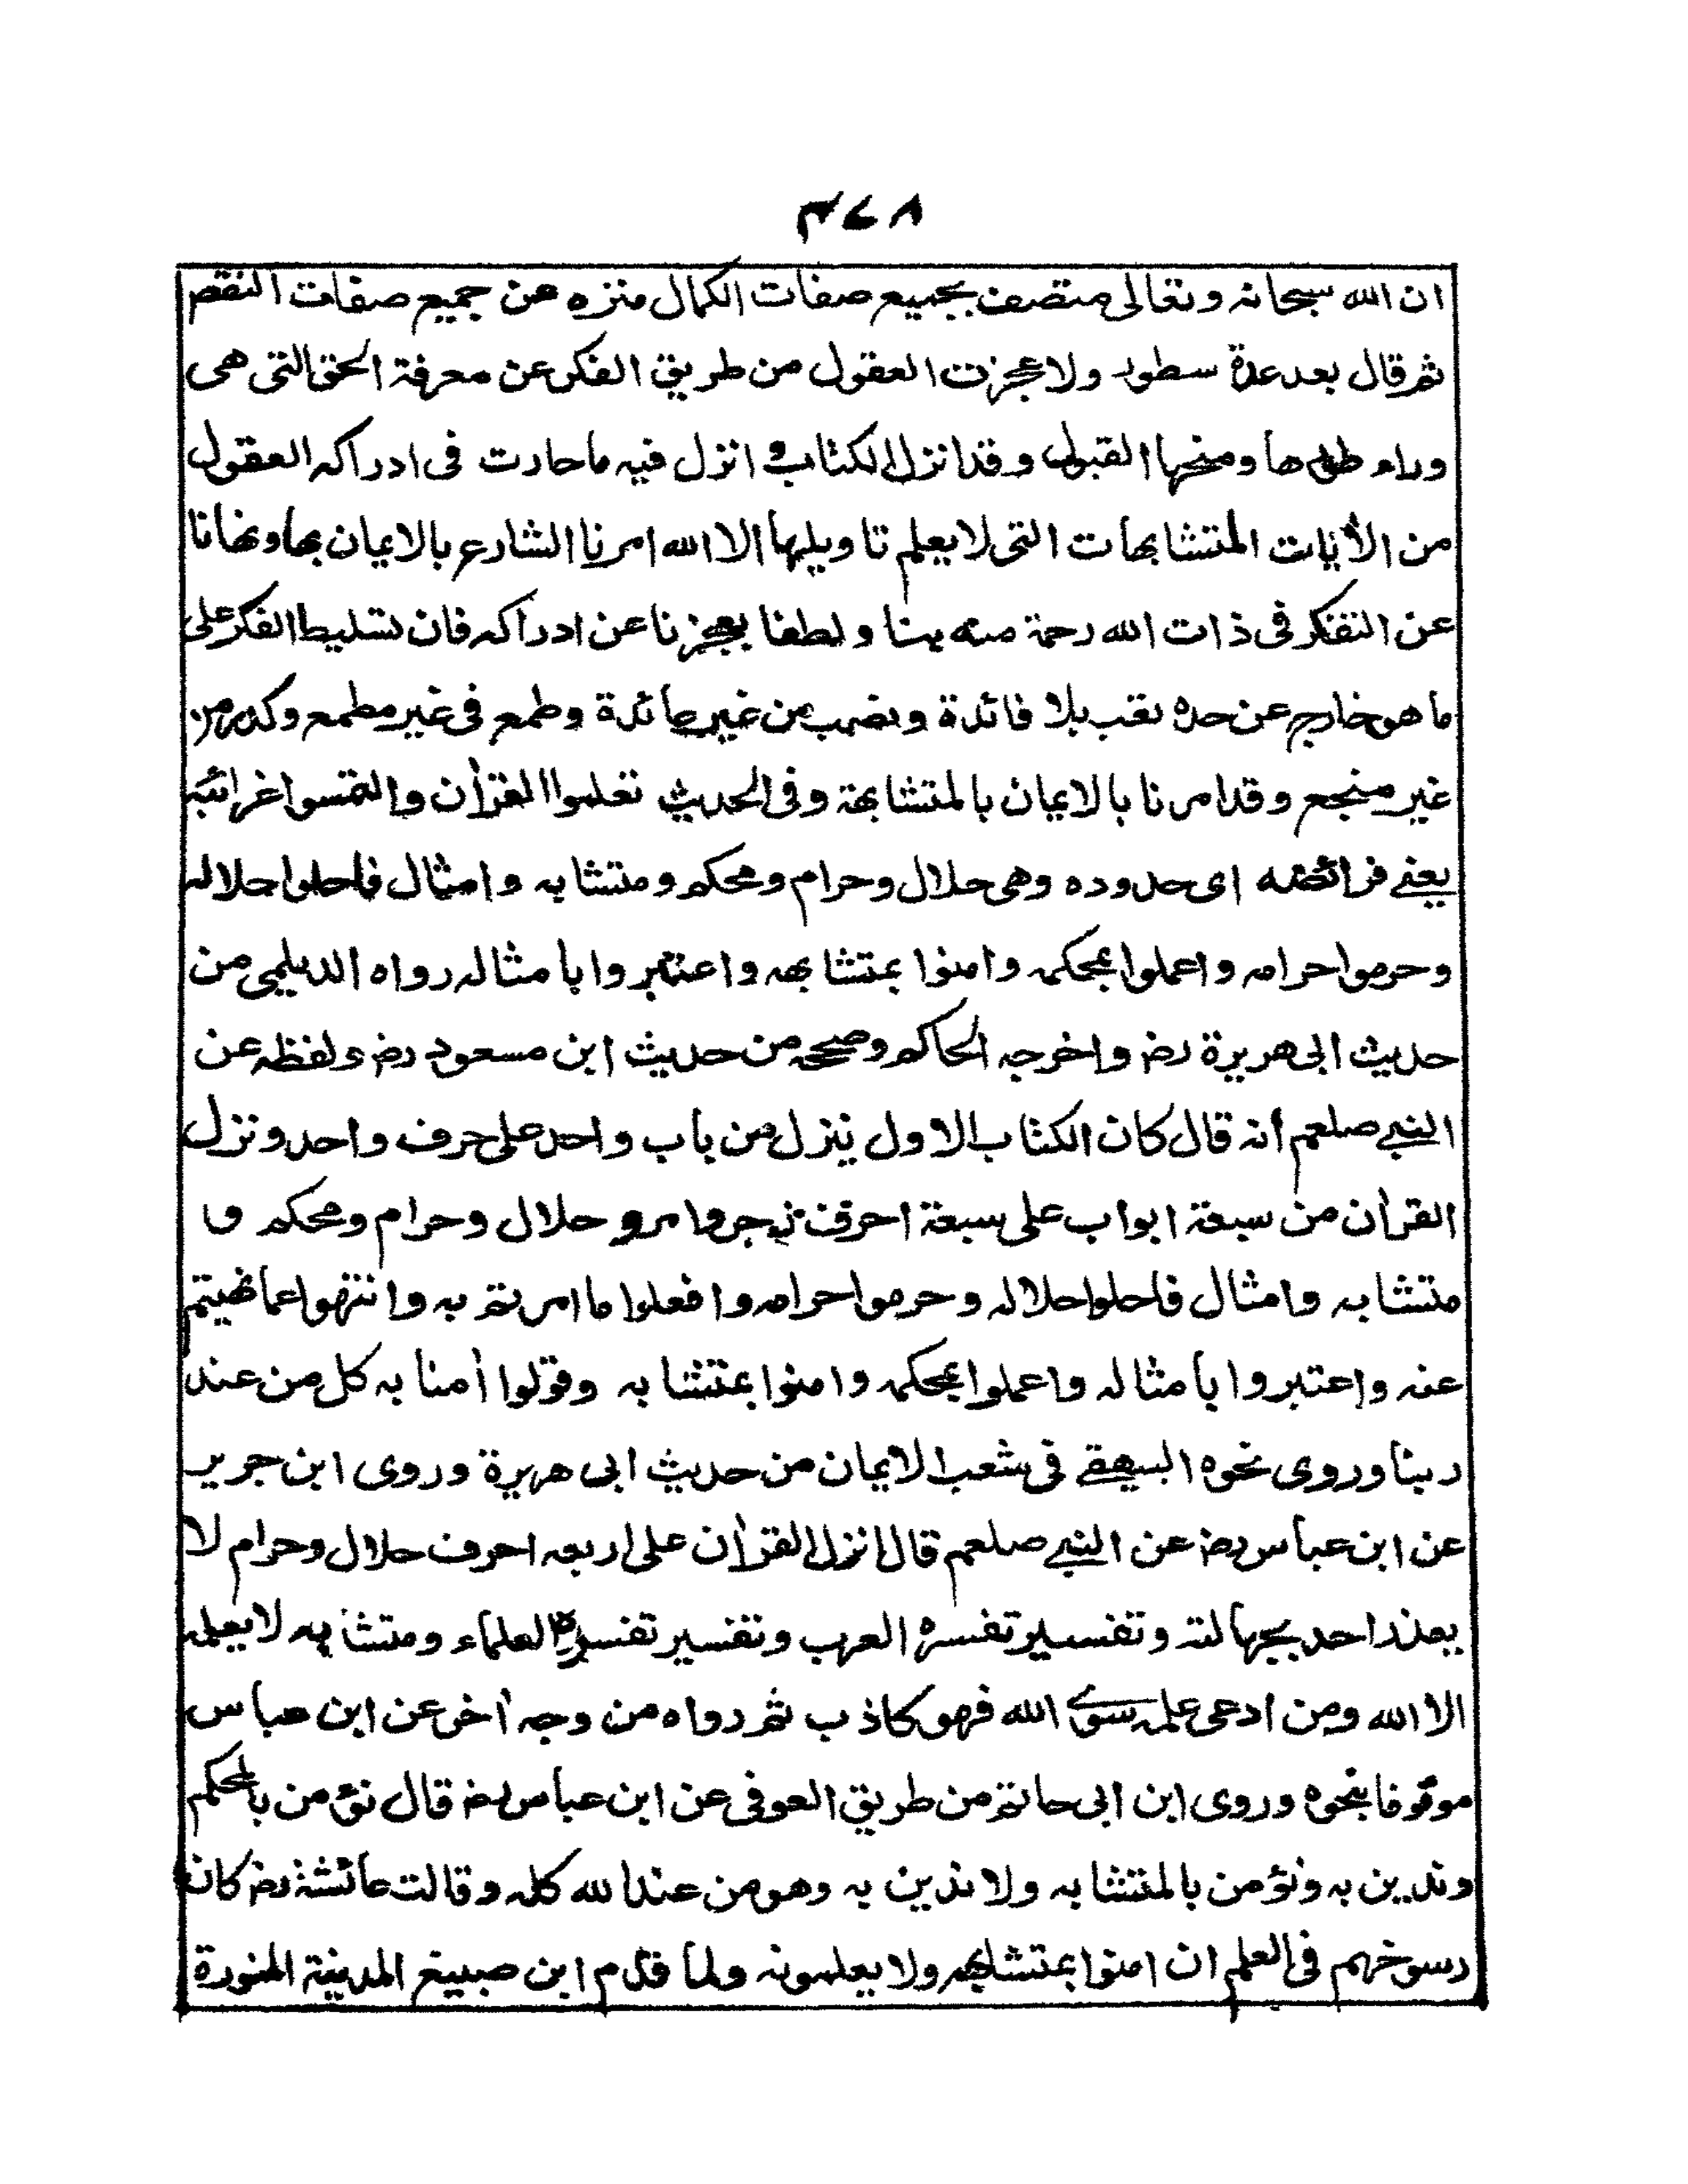 ٣٧٨
ان الله سبحانہ وتعالى متصف بجميع صفات الكمال منزه عن جميع صفات النقص
ثم قال بعد عدة سطور ولا عجزت العقول من طريق الفكر عن معرفة الحق التى هى
وراء طورها ومنحها القبول وقد انزل الكتاب و انزل فيه ما حارت فى ادراكہ العقول
من الأيات المتشابهات التى لا يعلم تاويلها الا الله امرنا الشارع بالايمان بها ونهانا
عن التفكر فى ذات الله رحمة منه بنا ولطفا بعجزنا عن ادراكہ فان تسليط الفكر على
ما هو خارج عن حده تعب بلا فائدة ونصب من غير عائدة وطمع فى غير مطمع وكد من
غير منجع وقد امرنا بالايمان بالمتشابهة وفى الحديث تعلموا القرأن والتمسوا غرائبہ
يعنے فرائضه اى حدوده وهى حلال وحرام ومحكم ومتشابه وامثال فاحلوا حلالہ
وحرموا حرامہ واعملوا بمحكمہ وامنوا بمتشابهه واعتبروا بامثالہ رواه الديلمى من
حديث ابى هريرة رضـ واخرجہ الحاكم وصححہ من حديث ابن مسعود رضـ ولفظہ عن
النبے صلعم أنہ قال كان الكتاب الاول ينزل من باب واحد على حرف واحد ونزل
القرأن من سبعة ابواب على سبعة احرف زجر وامر و حلال وحرام ومحكم و
متشابہ وامثال فاحلوا حلالہ وحرموا حرامہ وافعلوا ما امرتم بہ وانتهوا عما نهيتم
عنہ واعتبروا بامثالہ واعملوا بمحكمہ وامنوا بمتشابہ وقولوا أمنا بہ كل من عند
ربنا وروى نحوه البيهقے فى شعب الايمان من حديث ابى هريرة وروى ابن جرير
عن ابن عباس رضـ عن النبے صلعم قال انزل القرأن على اربعہ احرف حلال وحرام لا
يعذر احد بجهالتہ وتفسير تفسره العرب وتفسير تفسره العلماء ومتشابہ لا يعلمہ
الا الله ومن ادعى علمہ سوے الله فهو كاذب ثم رواه من وجہ أخر عن ابن عباس
موقوفا بنحوه وروى ابن ابى حاتم من طريق العوفى عن ابن عباس رضـ قال نؤمن بالمحكم
وندين بہ ونؤمن بالمتشابہ ولا ندين بہ وهو من عند الله كلہ وقالت عائشة رضـ كان
رسوخهم فى العلم ان امنوا بمتشابهہ ولا يعلمونہ ولما قدم ابن صبيغ المدينة المنورة